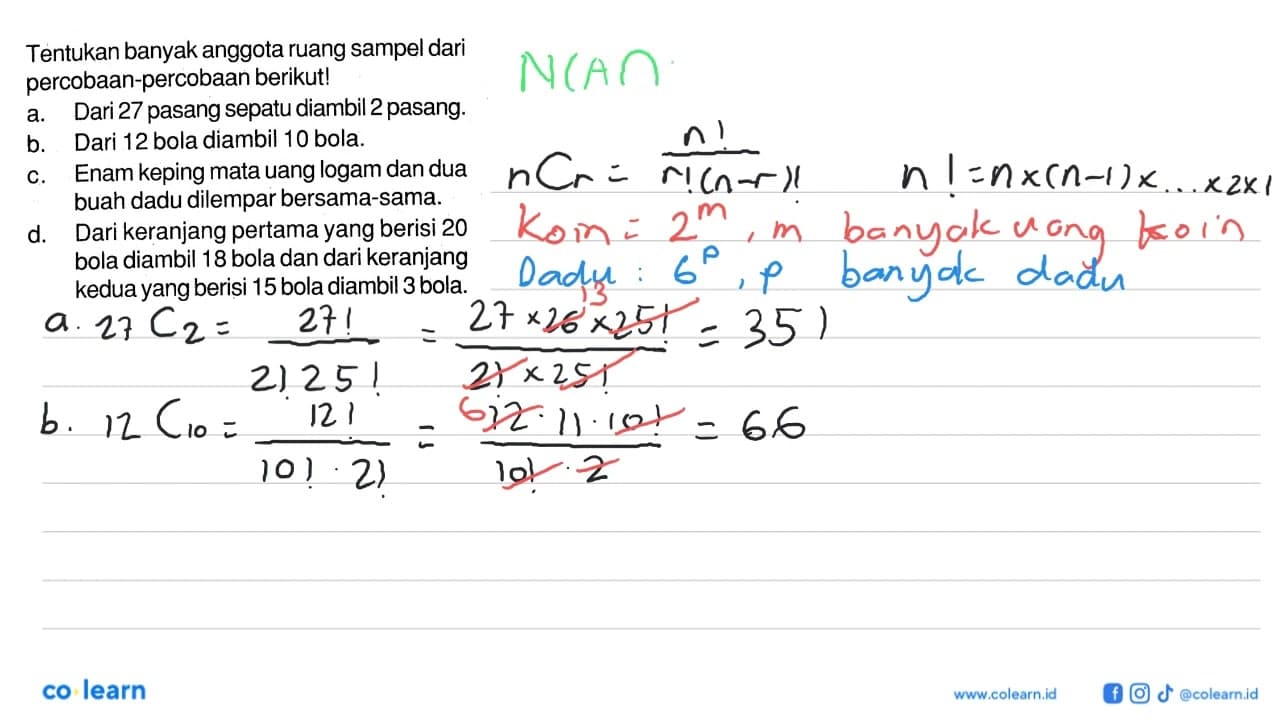 Tentukan banyak anggota ruang sampel dari
percobaan-percobaan berikut!
a. Dari 27 pasang sepatu diambil 2 pasang.
b. Dari 12 bola diambil 10 bola.
c. Enam keping mata uang logam dan dua
buah dadu dilempar bersama-sama.
d. Dari keranjang pertama yang berisi 20
bola diambil 18 bola dan dari keranjang
kedua yang berisi 15 bola diambil 3 bola.
N(A∩
nCr = n! / r!(n-r)! n! = n×(n-1)×...×2×1
Koin = 2^m, m banyak uang koin
Dadu : 6^p, p banyak dadu
a. 27 C2 = 27! / 2! 25! = 27 × 26 13 × 25! / 2! × 25! = 351
b. 12 C10 = 12! / 10! . 2! = 6 12 . 11 . 10! / 10! . 2 = 66
co learn
www.colearn.id @colearn.id